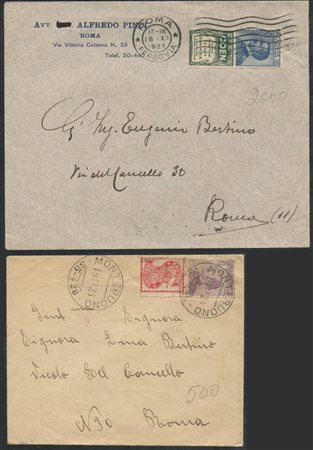 Avv. ALFREDO PINI
ROMA
Via Vittoria Colonna N, 39
Telef. 20-44
ROMA
17-18
18·XI
1924
FERROVIA
COEN
2000
Ing. Eugenio Bertino
Via del Cancello 30
Roma (11)
MONTEBUONO
Signora
Signora Lina Bertino
Vicolo del Cancello
N 30 Roma
500